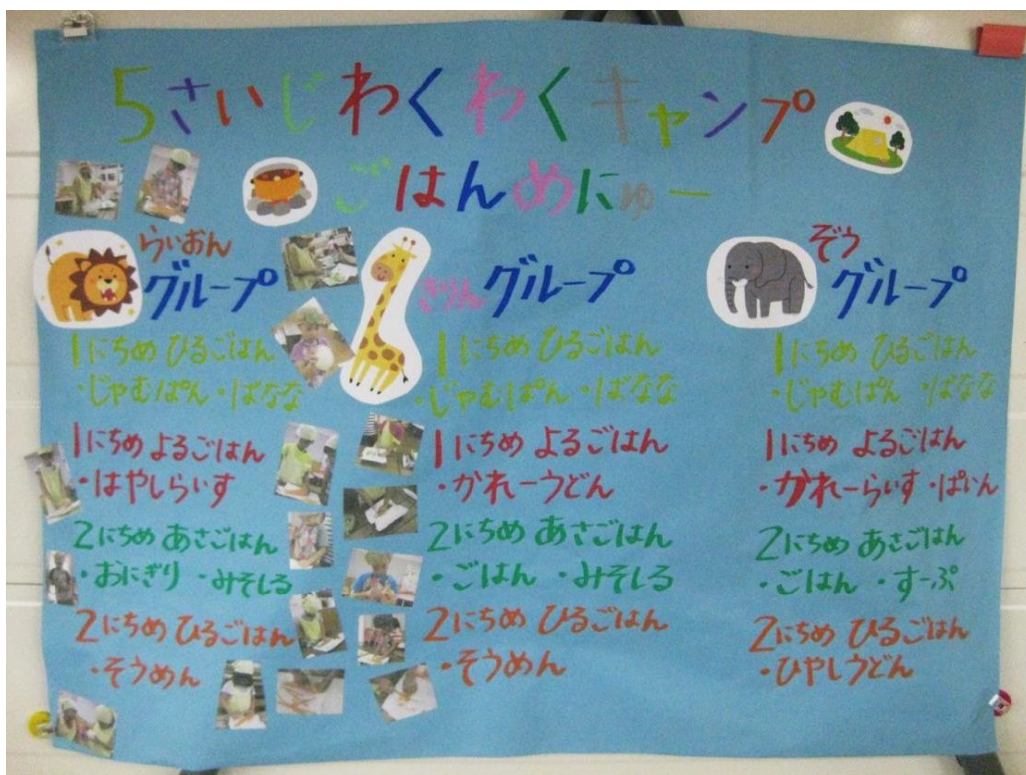 5さいじわくわくキャンプ
ごはんめにゅー
らいおん
グループ
1にちめ ひるごはん
・じゃむぱん ・ばなな
1にちめ よるごはん
・はやしらいす
2にちめ あさごはん
・おにぎり ・みそしる
2にちめ ひるごはん
・そうめん
きりん グループ
1にちめ ひるごはん
・じゃむぱん ・ばなな
1にちめ よるごはん
・かれーうどん
2にちめ あさごはん
・ごはん ・みそしる
2にちめ ひるごはん
・そうめん
ぞう
グループ
1にちめ ひるごはん
・じゃむぱん ・ばなな
1にちめ よるごはん
・かれーらいす ・ぱいん
2にちめ あさごはん
・ごはん ・すーぷ
2にちめ ひるごはん
・ひやしうどん